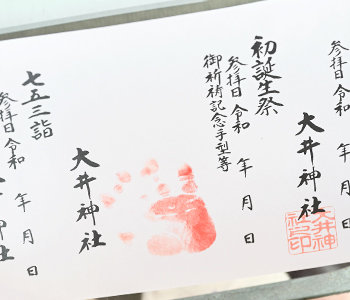 参拝日
大井神社
大井神社之印
初誕生祭
参拝日 令和 年 月 日
御祈祷記念手型等
大井神社
七五三詣
参拝日 令和 年 月 日